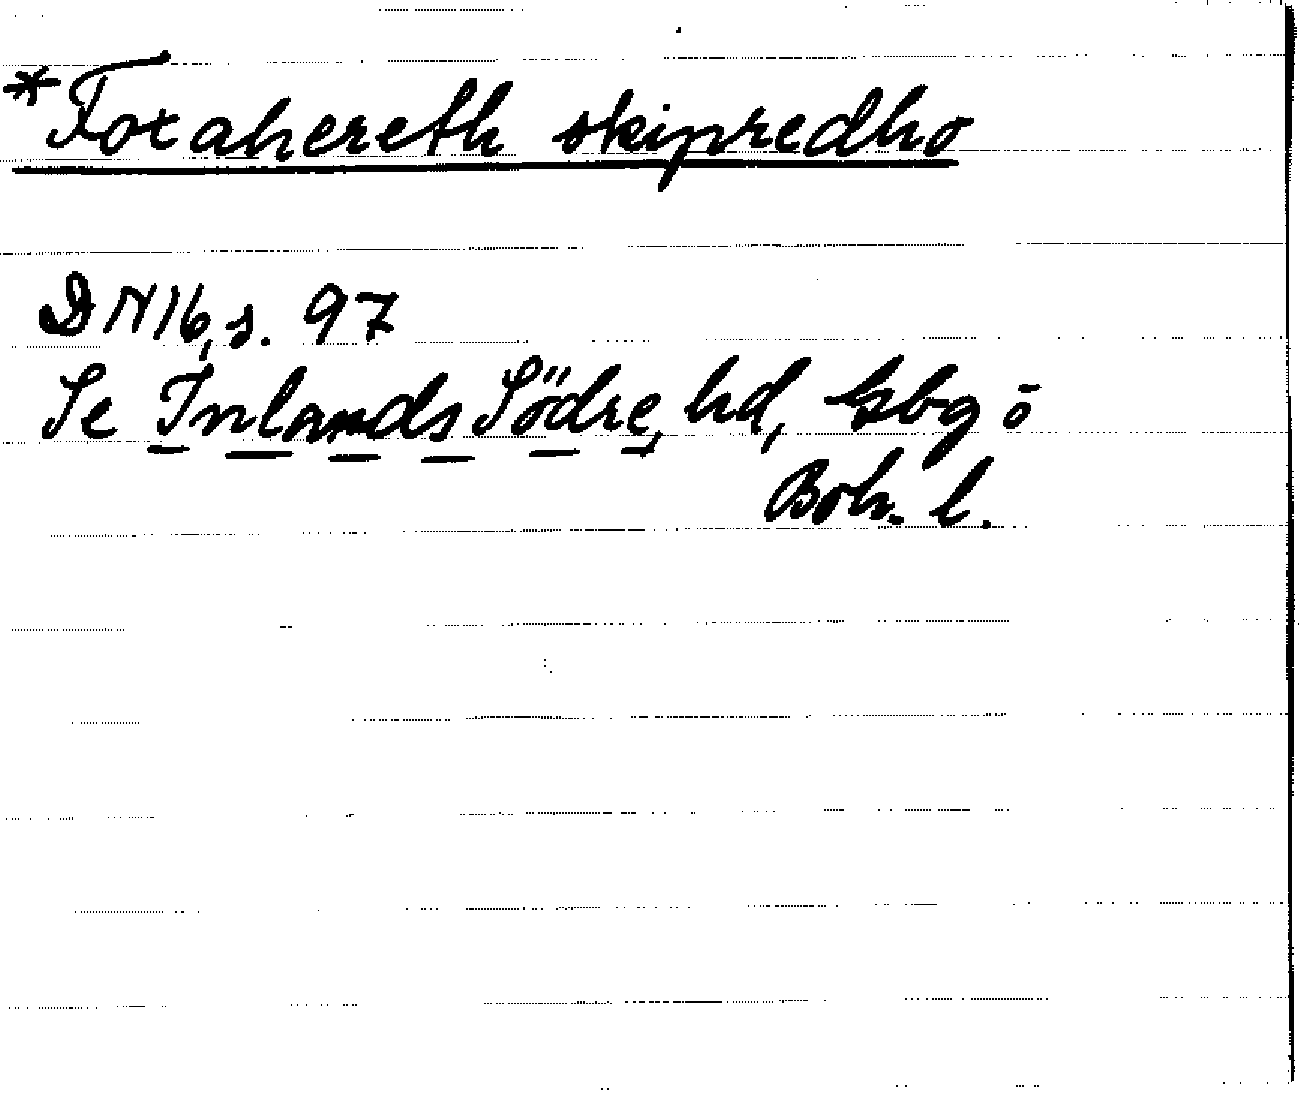 *Foxahereth skipredho
DN 16, s. 97
Se Inlands Södre, hd, Gbg o
Boh. l.